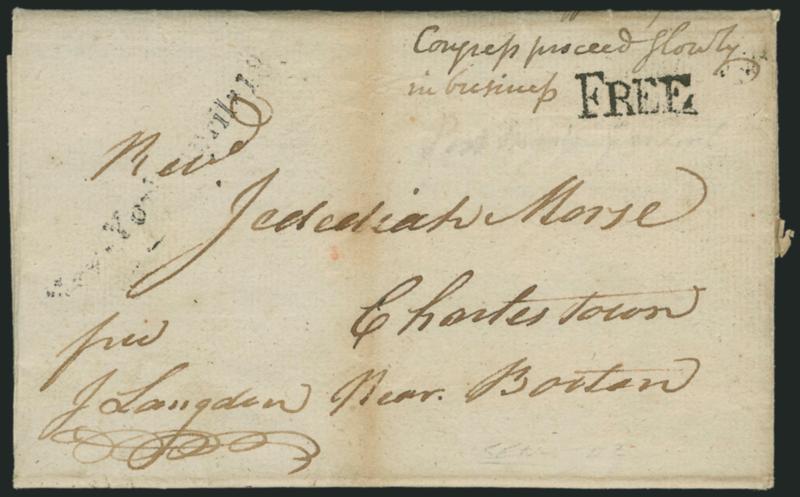 Congress proceed slowly
in business
FREE
Revd
Jedediah Morse
Charlestown
free
J Langdon Near Boston